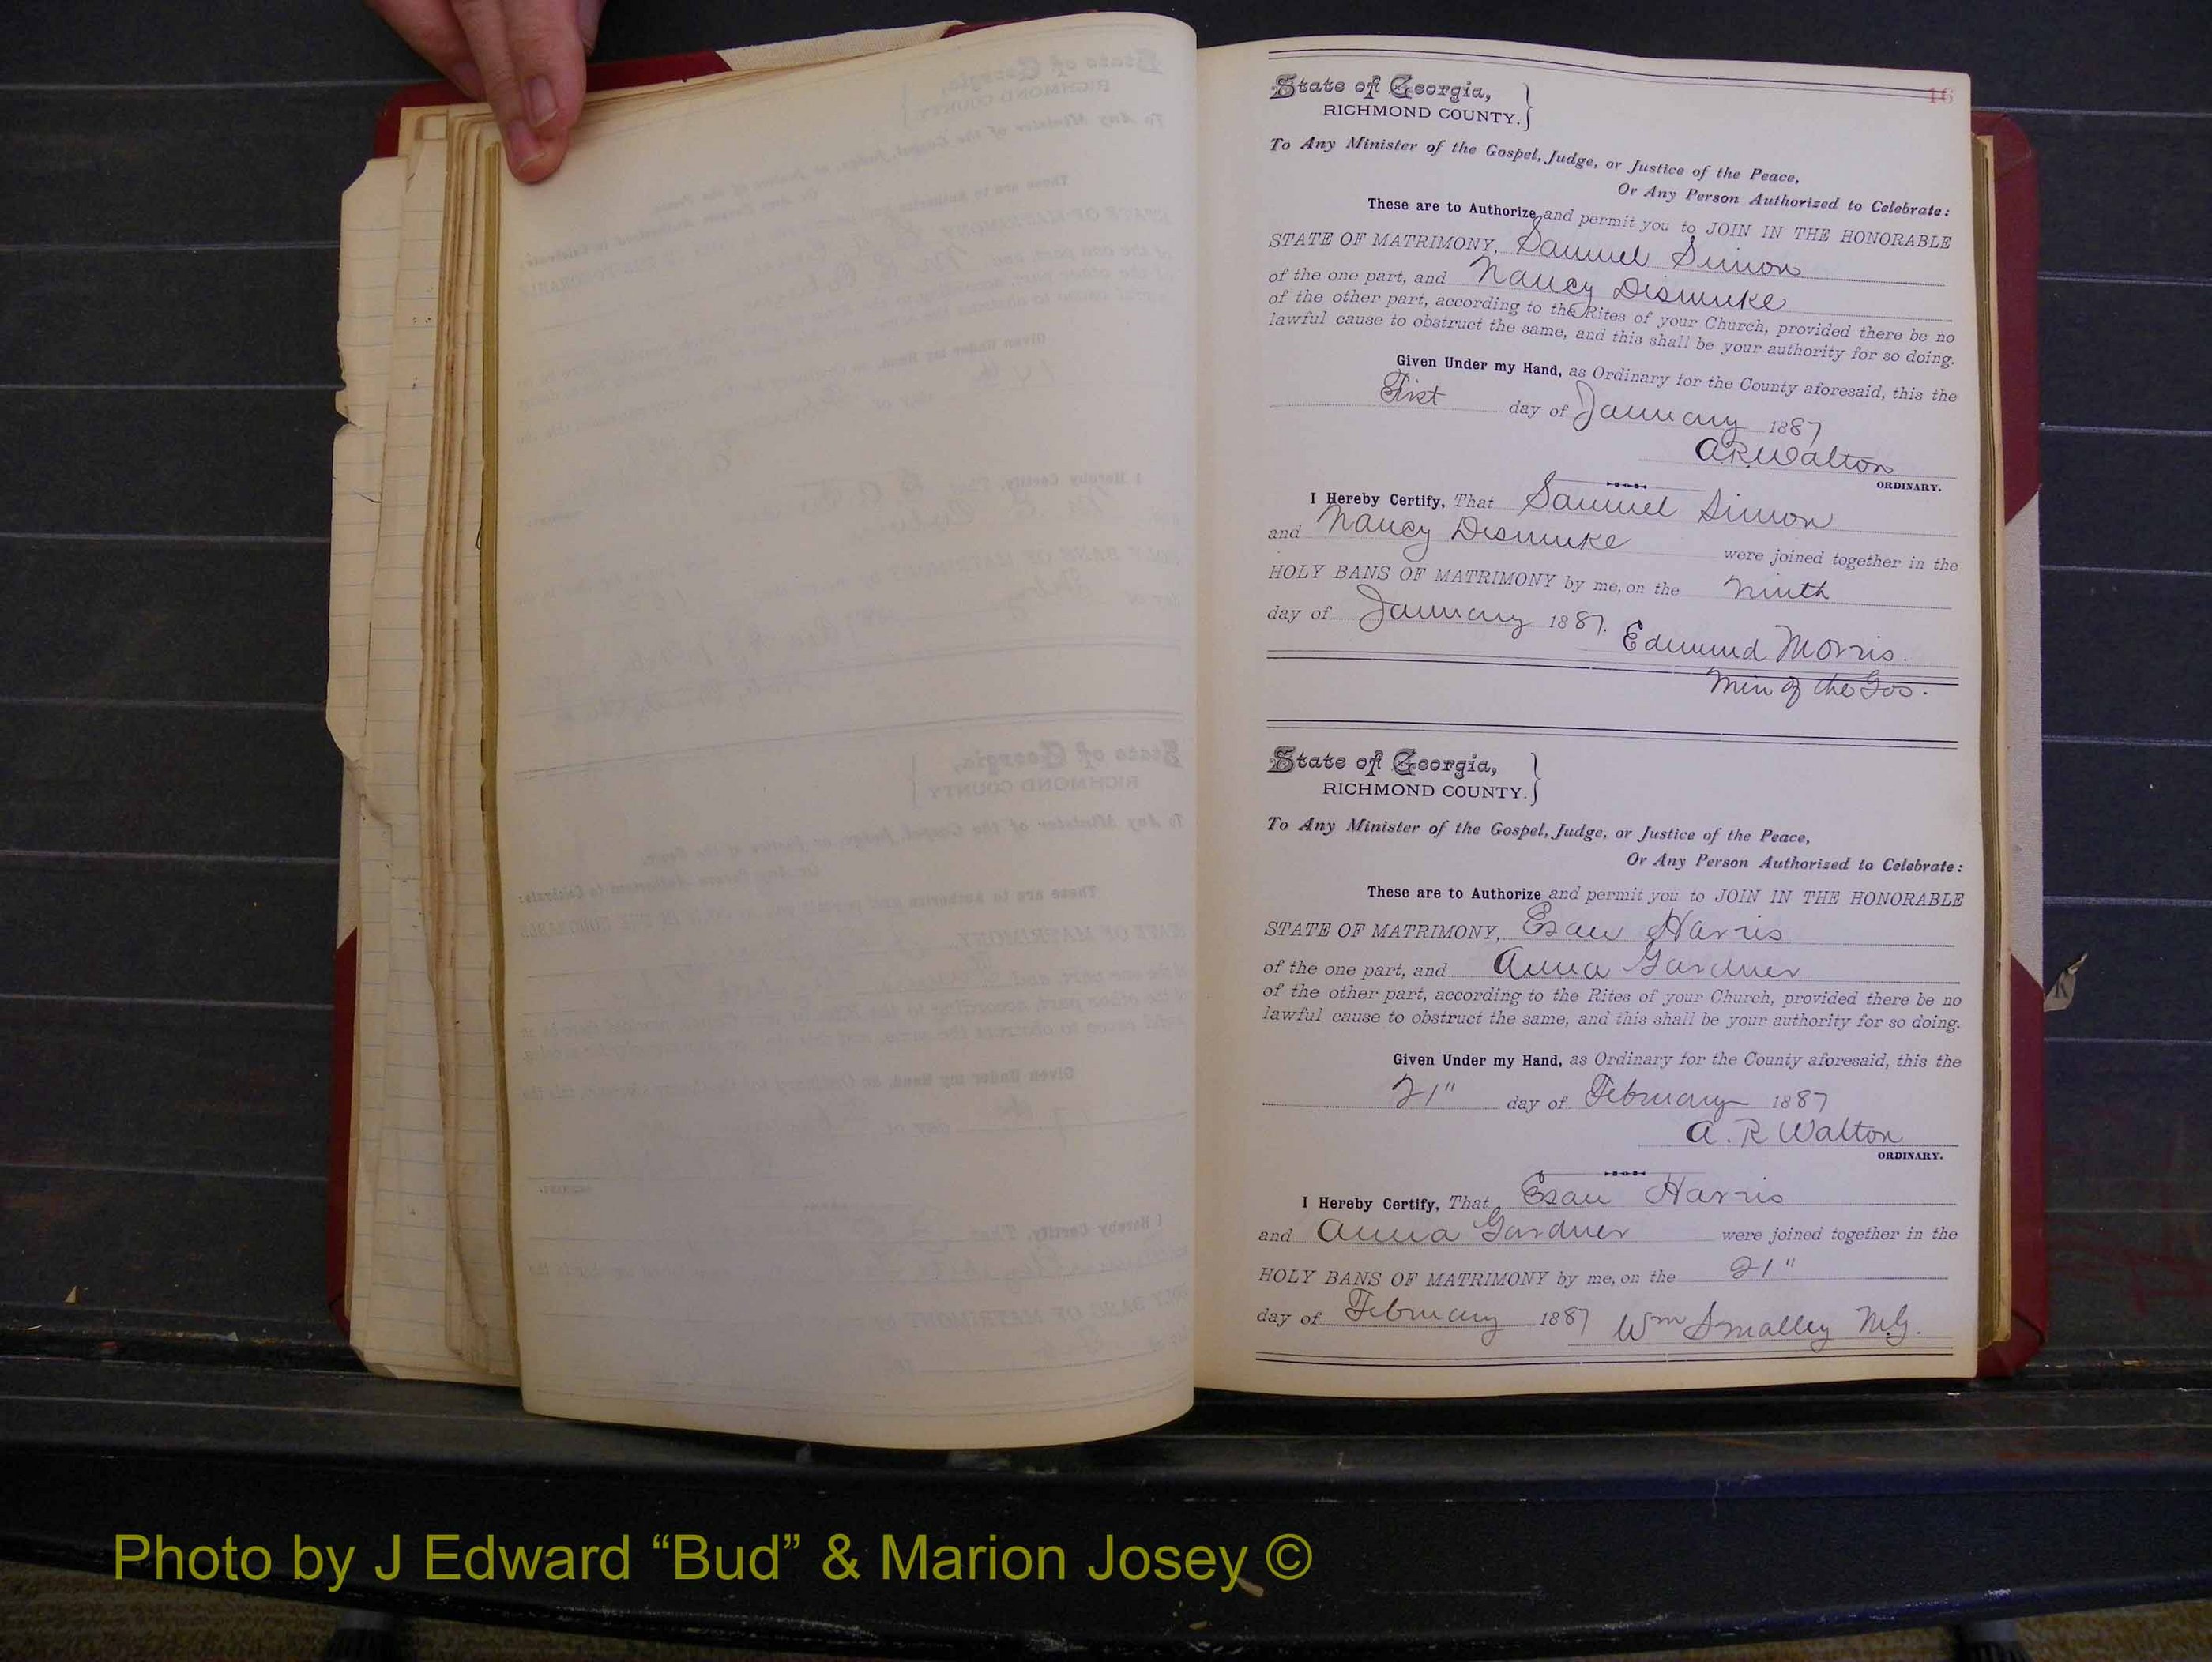 16
State of Georgia,
RICHMOND COUNTY.
To Any Minister of the Gospel, Judge, or Justice of the Peace,
Or Any Person Authorized to Celebrate:
These are to Authorize and permit you to JOIN IN THE HONORABLE
STATE OF MATRIMONY, Samuel Simon
of the one part, and Nancy Dismuke
of the other part, according to the Rites of your Church, provided there be no
lawful cause to obstruct the same, and this shall be your authority for so doing.
Given Under my Hand, as Ordinary for the County aforesaid, this the
First day of January 1887
A.R. Walton
ORDINARY.
I Hereby Certify, That Samuel Simon
and Nancy Dismuke were joined together in the
HOLY BANS OF MATRIMONY by me, on the Ninth
day of January 1887.
Edmund Morris.
Min of the Gos.
State of Georgia,
RICHMOND COUNTY.
To Any Minister of the Gospel, Judge, or Justice of the Peace,
Or Any Person Authorized to Celebrate:
These are to Authorize and permit you to JOIN IN THE HONORABLE
STATE OF MATRIMONY, Esau Harris
of the one part, and Anna Gardner
of the other part, according to the Rites of your Church, provided there be no
lawful cause to obstruct the same, and this shall be your authority for so doing.
Given Under my Hand, as Ordinary for the County aforesaid, this the
21" day of February 1887
A. R Walton
ORDINARY.
I Hereby Certify, That Esau Harris
and Anna Gardner were joined together in the
HOLY BANS OF MATRIMONY by me, on the 21"
day of February 1887 Wm Smalley M.G.
Photo by J Edward “Bud” & Marion Josey ©